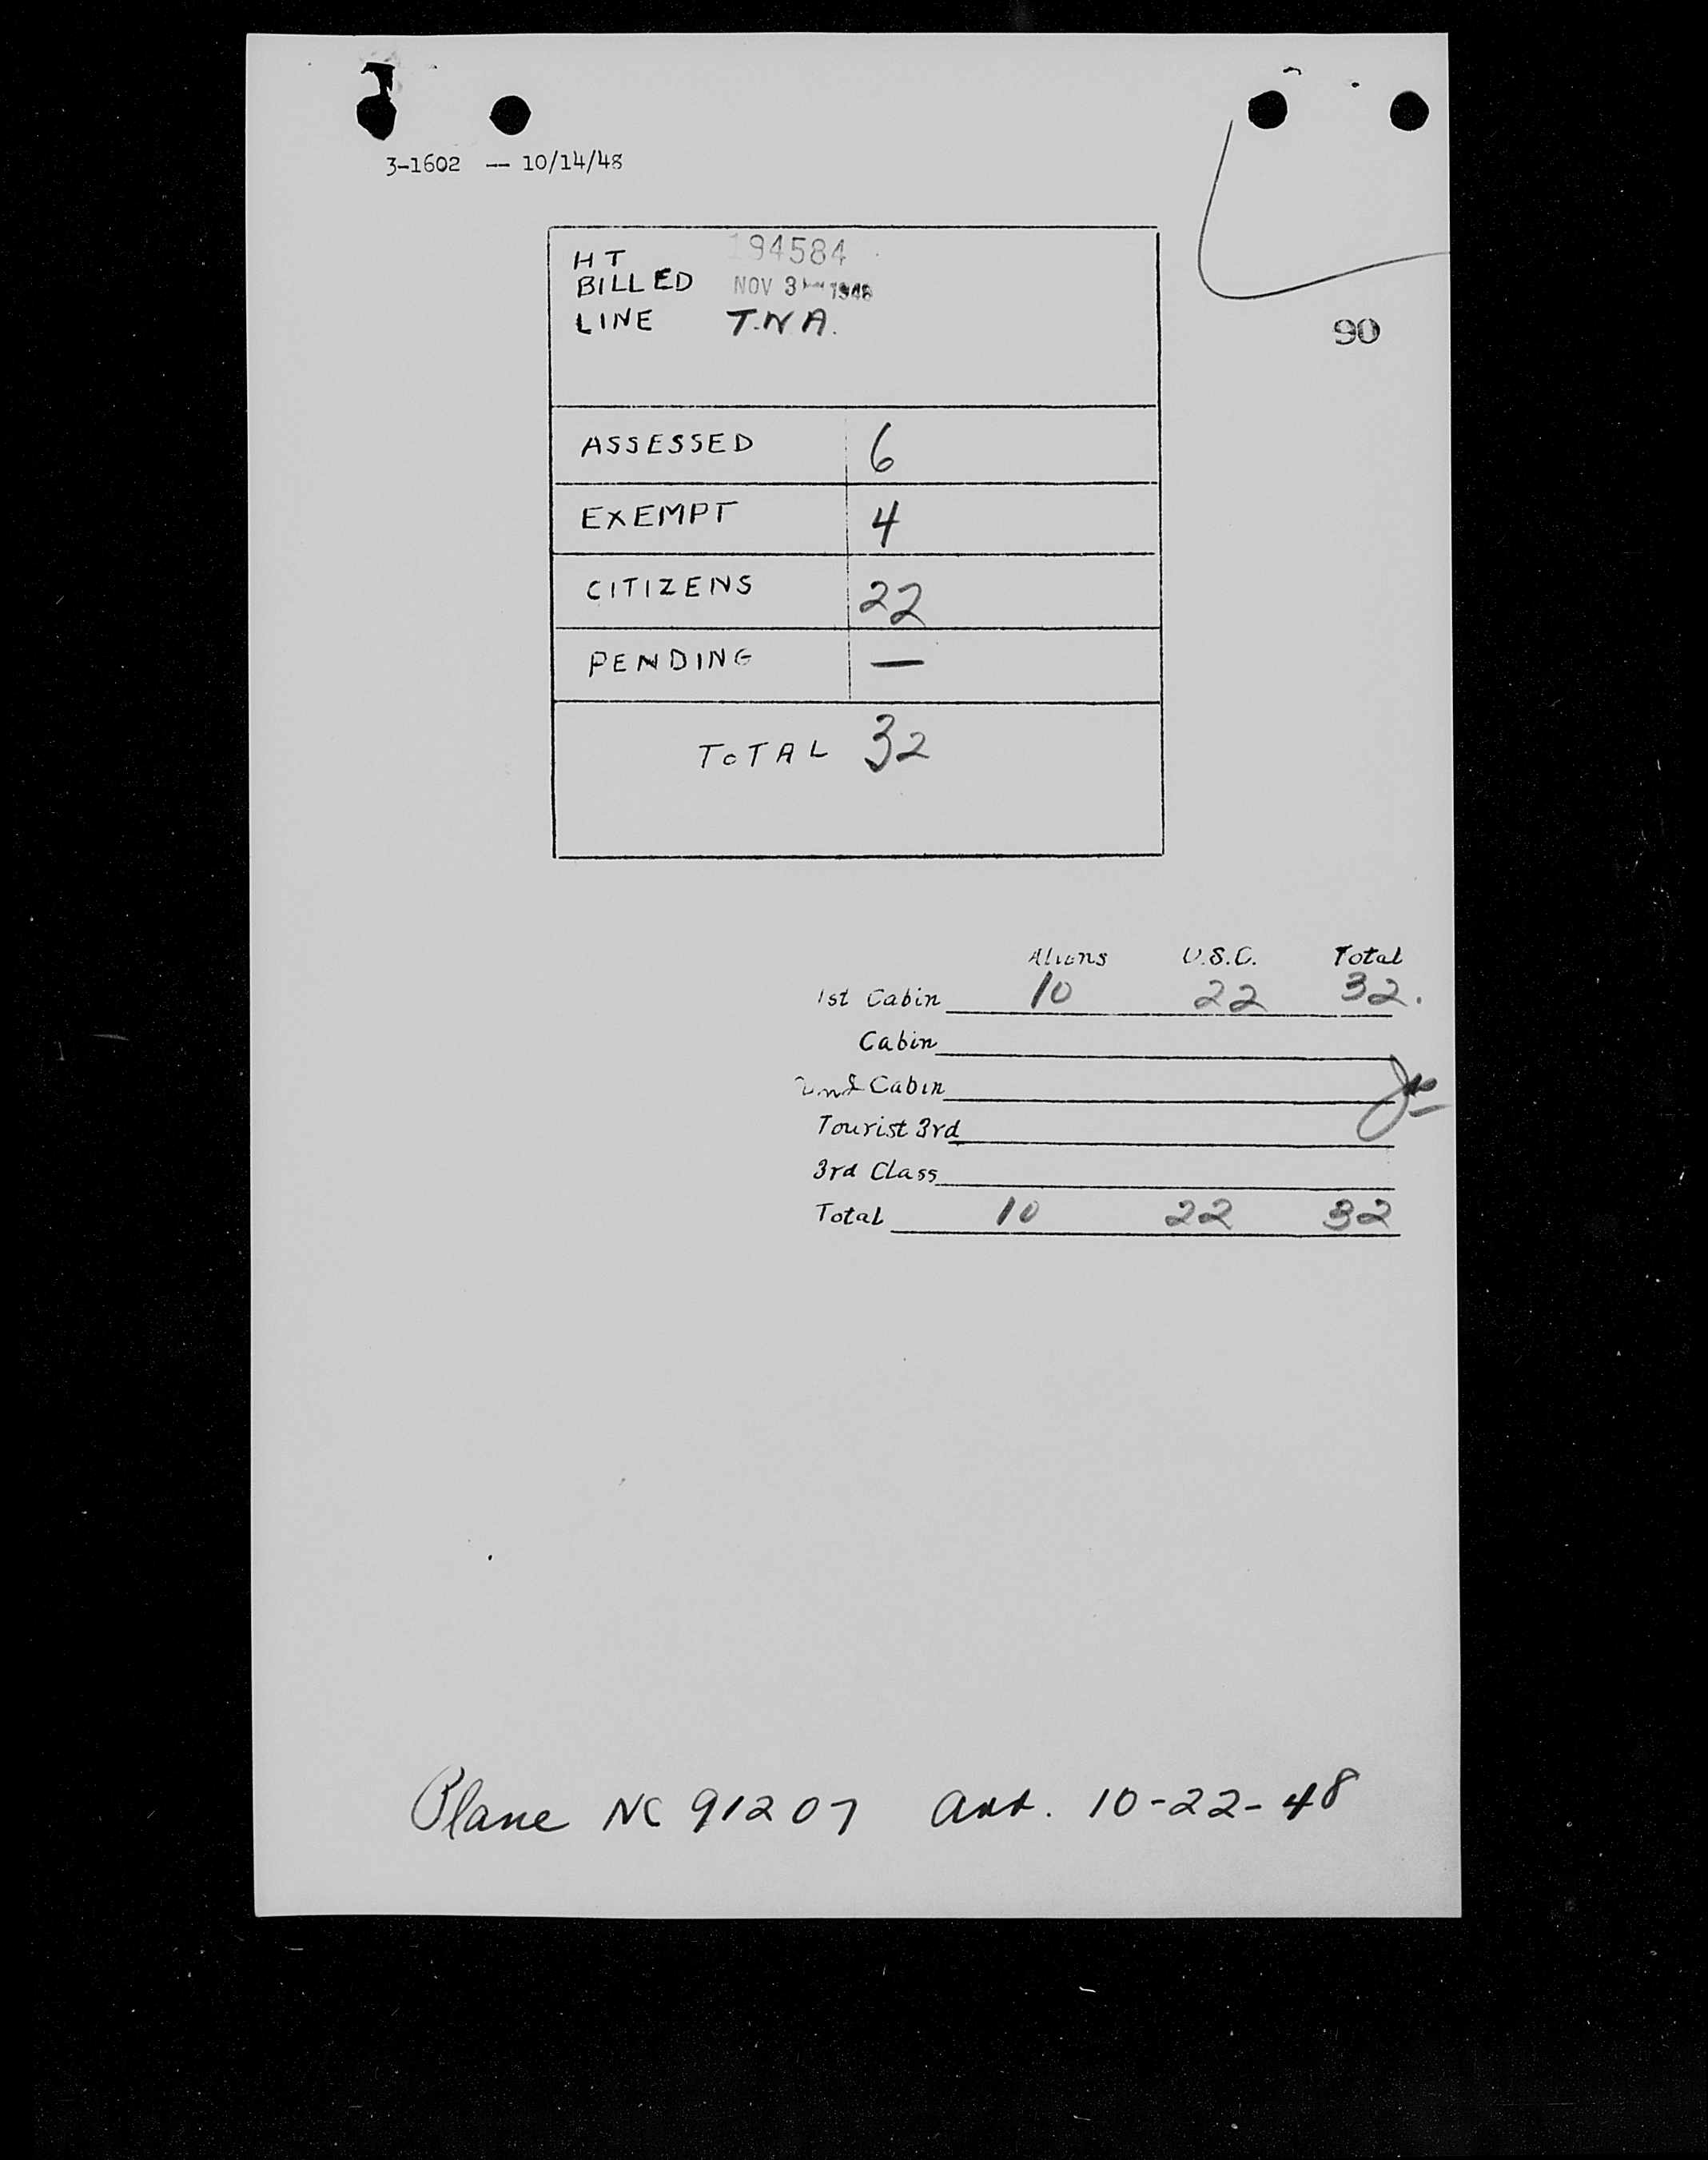 3-1602 -- 10/14/48
HT 194584
BILLED NOV 3 1948
LINE T.W.A.
90
ASSESSED 6
EXEMPT 4
CITIZENS 22
PENDING —
TOTAL 32
Aliens U.S.C. Total
1st Cabin 10 22 32.
Cabin
2nd Cabin
Tourist 3rd
3rd Class
Total 10 22 32
Plane NC 91207 arr. 10-22-48